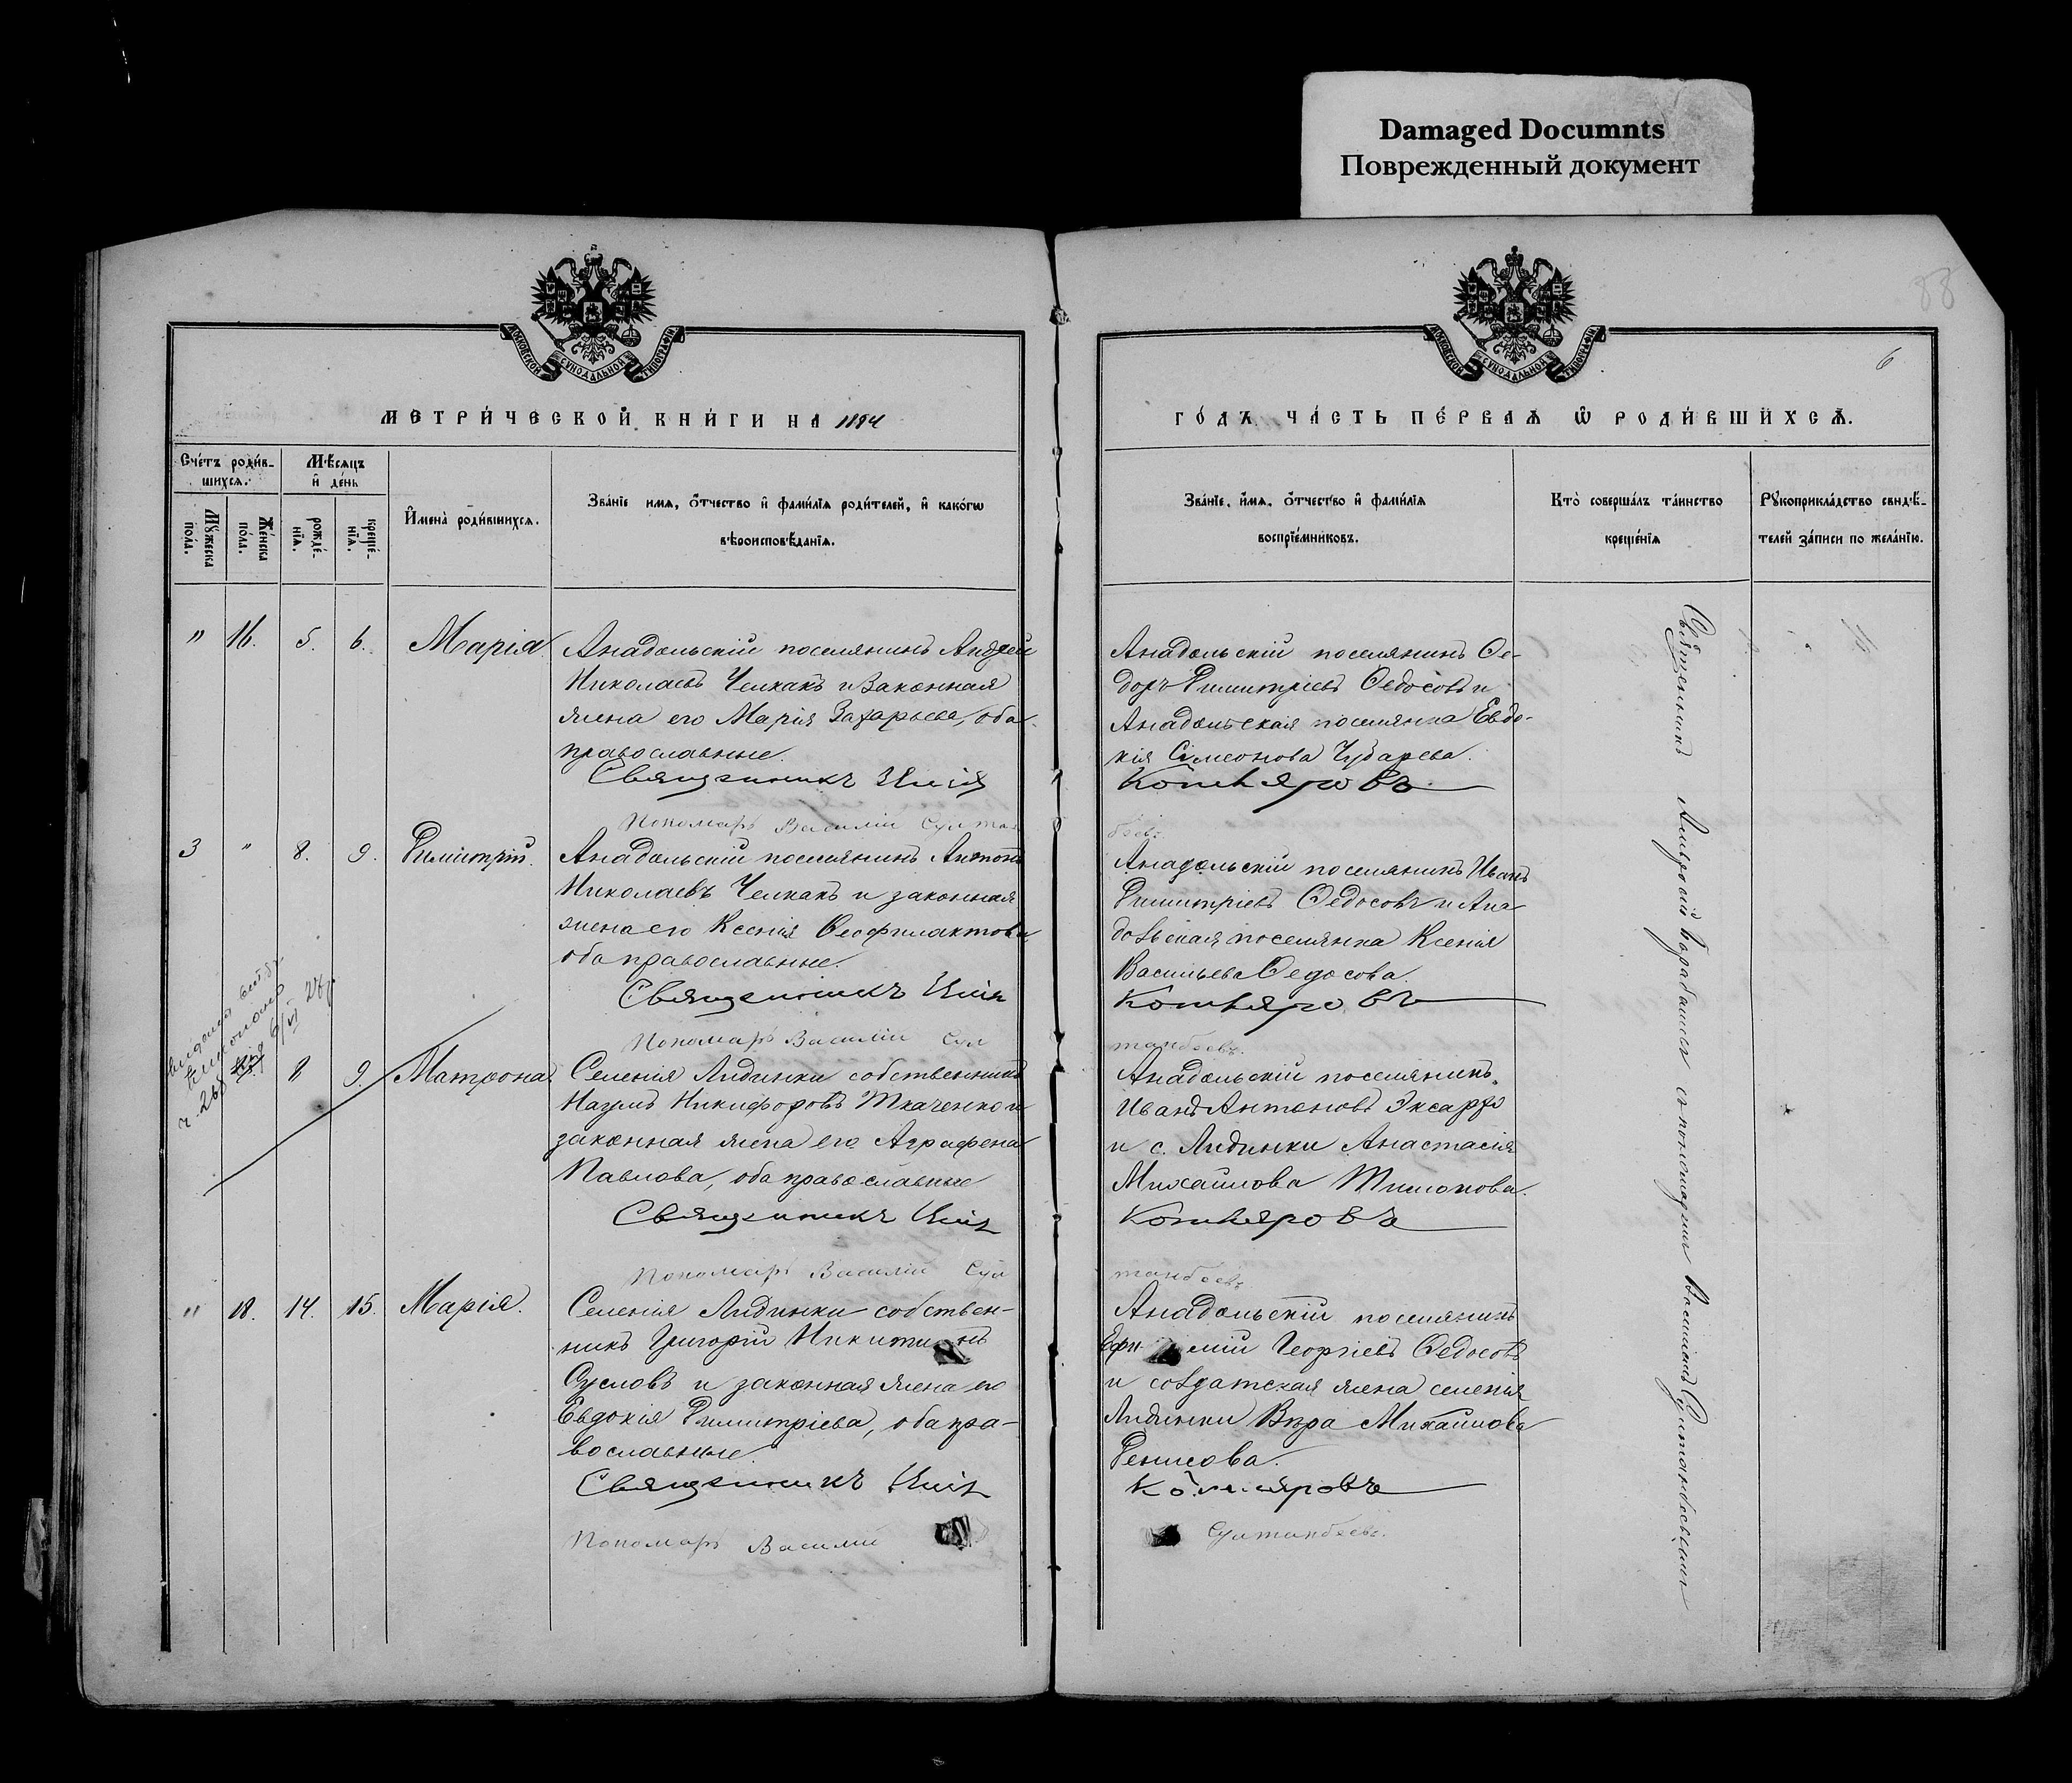 Damaged Documnts
Поврежденный документ
88
6
МОСКОВСКОЙ СѴНОДАЛЬНОЙ ТИПОГРАФІИ
МОСКОВСКОЙ СѴНОДАЛЬНОЙ ТИПОГРАФІИ
МЕТРИ́ЧЕСКОЙ КНИ́ГИ НА 1894
ГО́ДЪ ЧА́СТЬ ПЕ́РВАЯ Ѿ РОДИ́ВШИХСѦ.
Сче́тъ роди́в-
шихсѧ.
Мѣ́сѧцъ
и҆ де́нь
Мꙋ́жеска
по́ла.
Же́нска
по́ла.
рожде́-
нїѧ.
креще́-
нїѧ.
И҆мена̀ роди́вшихсѧ.
Зва́нїе имѧ, ѻ҆́тчество и҆ фами́лїѧ роди́телей, и҆ како́гѡ
вѣроисповѣ́данїѧ.
Зва́нїе, и҆́мѧ, ѻ҆́тчество и҆ фами́лїѧ
воспрїе́мниковъ.
Кто̀ соверша́лъ та́инство
креще́нїѧ
Рꙋкоприкла́дство свидѣ́-
телей за́писи по жела́нїю.
" 16. 5. 6. Марія.
Анадольскій поселянинъ Андрей
Николаевъ Челкакъ и законная
жена его Марія Захарьева, оба
православные.
Священникъ Илія
Пономарь Василій Султан
Анадольскій поселянинъ Ѳе-
доръ Димитріевъ Ѳедосовъ и
Анадольская поселянка Евдо-
кія Симеонова Чубарева.
Котляровъ
боевъ.
3 " 8. 9. Димитрій.
Анадольскій поселянинъ Антонъ
Николаевъ Челкакъ и законная
жена его Ксенія Ѳеофилактова
оба православные.
Священникъ Илія
Пономарь Василій Сул
Анадольскій поселянинъ Иванъ
Димитріевъ Ѳедосовъ и Ана
дольская поселянка Ксенія
Васильева Ѳедосова.
Котляровъ
танбоевъ.
8 9. Матрона.
Селенія Лидинки собственникъ
Наумъ Никифоровъ Ткаченко и
законная жена его Аграфена
Павлова, оба православные
Священникъ Илія
Пономарь Василій Сул
Анадольскій поселянинъ
Иванъ Антоновъ Эксархо
и с. Лидинки Анастасія
Михайлова Тимонова.
Котляровъ
танбоевъ
" 18. 14. 15. Марія.
Селенія Лидинки собствен-
никъ Григорій Никити нъ
Сусловъ и законная жена его
Евдокія Димитріева, оба пра-
вославные.
Священникъ Илія
Пономарь Василій
Анадольскій поселянинъ
Ефи мій Георгіевъ Ѳедосовъ
и солдатская жена селенія
Лидинки Вѣра Михайлова
Денисова.
Котляровъ
Султанбоевъ.
Священникъ Амвросій съ пономаремъ Василіемъ Султанбоевымъ